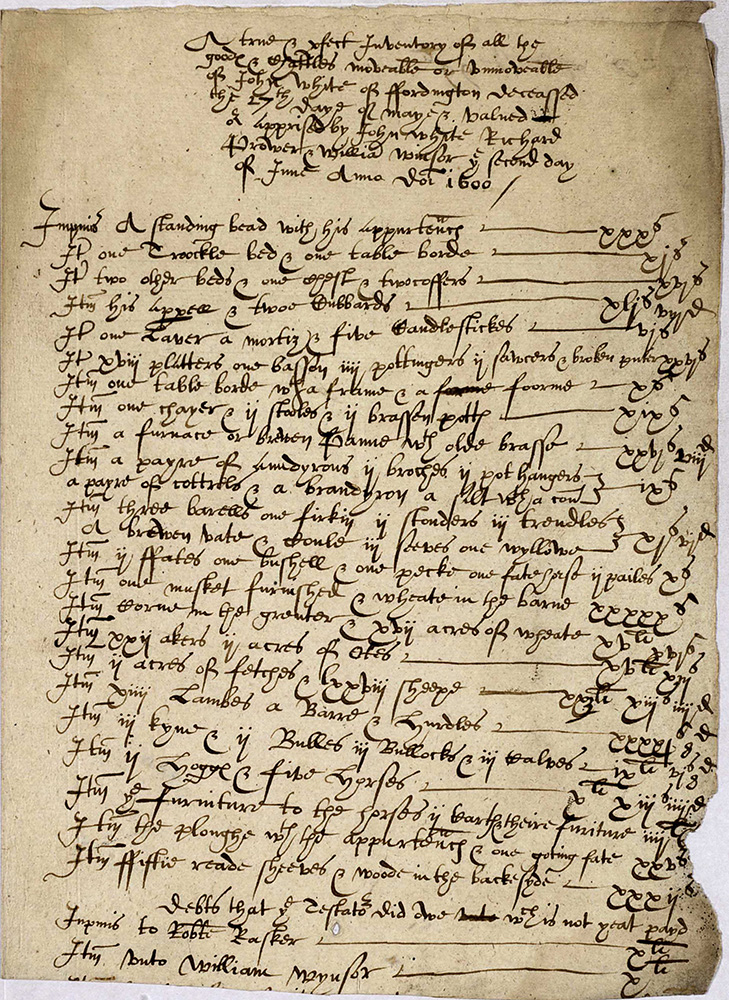 A true & pfect Inventory of all the
goods & Chattles moveable or vnmoveable
of John White of ffordington deceassed
the 17th daye of maye & valued
& apprised by John Whyte Richard
Prower & Willia Winsor ye second day
of June Anno Doi 1600
Inpmis A standing bead with his appurtenncs xxxs
It one Trockle bed & one table borde xjs
It two other beds & one Chest & two coffers xvjs
Itm his appell & twoe Cubbards xljs viijd
It one Laver a mortiz & five Candlestickes vjs
It xviij platters one basson iiij pottingers ij sawcers & broken puter xxvjs
Itm one table borde wth a frame & a foorme xs
Itm one chayer & ij stooles & ij brassen potts xixs
Itm a furnace or brewen Panne wth olde brasse xxvjs viijd
Itm a payre of Anndyrons ij broches ij pot hangers
a payre of cottrels & a brandyron a wth a ixs
Itm three barells one firkin ij stonders iij trendles
A brewen vate & Coule iij seeves one wyllowe xjs vjd
Itm ij ffates one bushell & one pecke one ij pailes xs
Itm one musket furnished & wheate in the barne xxxxxs
Itm Corne in the greater & xvij acres of wheate xvli
Itm xxij akers ij acres of Otes xvli
Itm ij acres of fetches & lxxviij sheepe
Itm xiiij Lambes a Barre & Hurdles
Itm iij kyne & ij Bulles iij Bullocks & iij Calves ixli
Itm ij Hoggs & five Horses xli
Itm ye Furniture to the horses ij Carts & theire furniture
Itm the ploughe wth the appurtenncs & one going fate xxvs
Itm ffiftie reade sheeves & woode in the backesyde xxxijs
Debts that ye Testator did owe wch is not yeat payd
Inpmis to Robte Rasker xli
Itm vnto William Wynsor